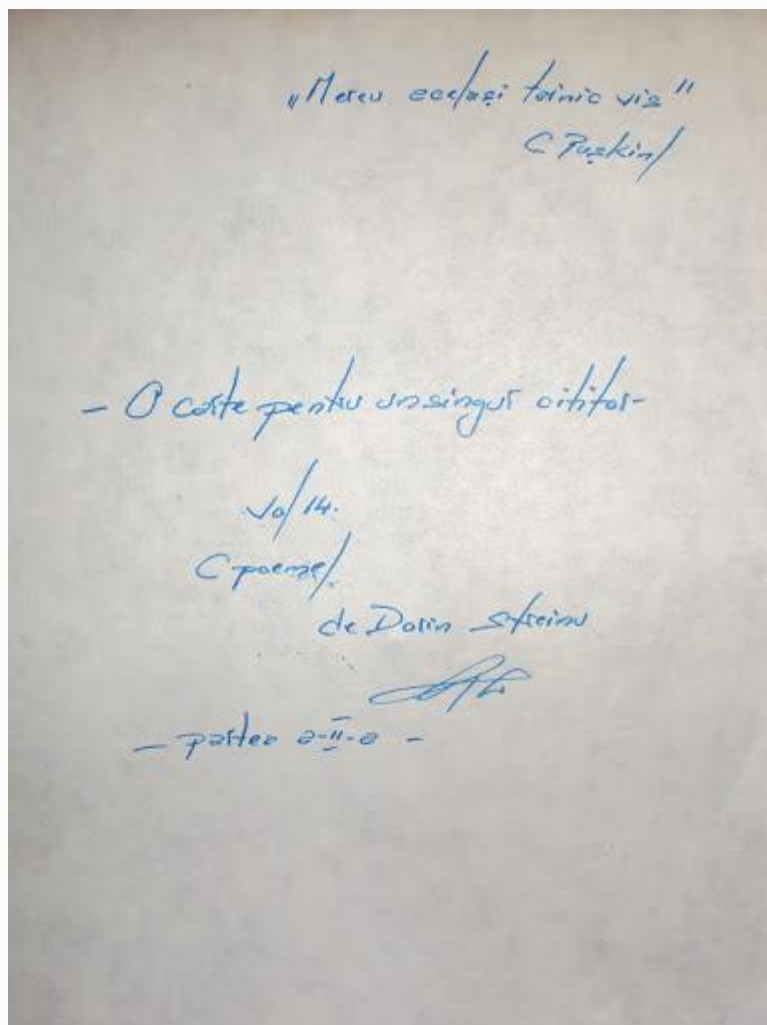 „Mereu același tainic vis"
(Pușkin)
- O carte pentru un singur cititor-
vol 14.
(poeme)
de Dorin Streinu
- partea a-II-a -